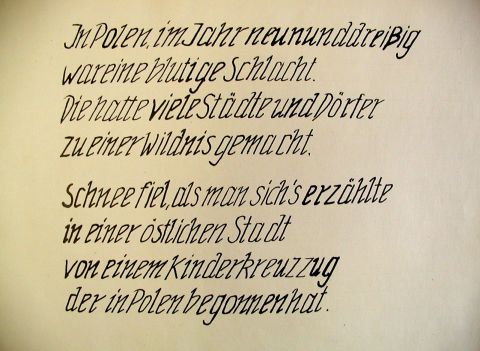 In Polen, im Jahr neununddreißig
war eine blutige Schlacht.
Die hatte viele Städte und Dörfer
zu einer Wildnis gemacht.
Schnee fiel, als man sich's erzählte
in einer östlichen Stadt
von einem Kinderkreuzzug
der in Polen begonnen hat.